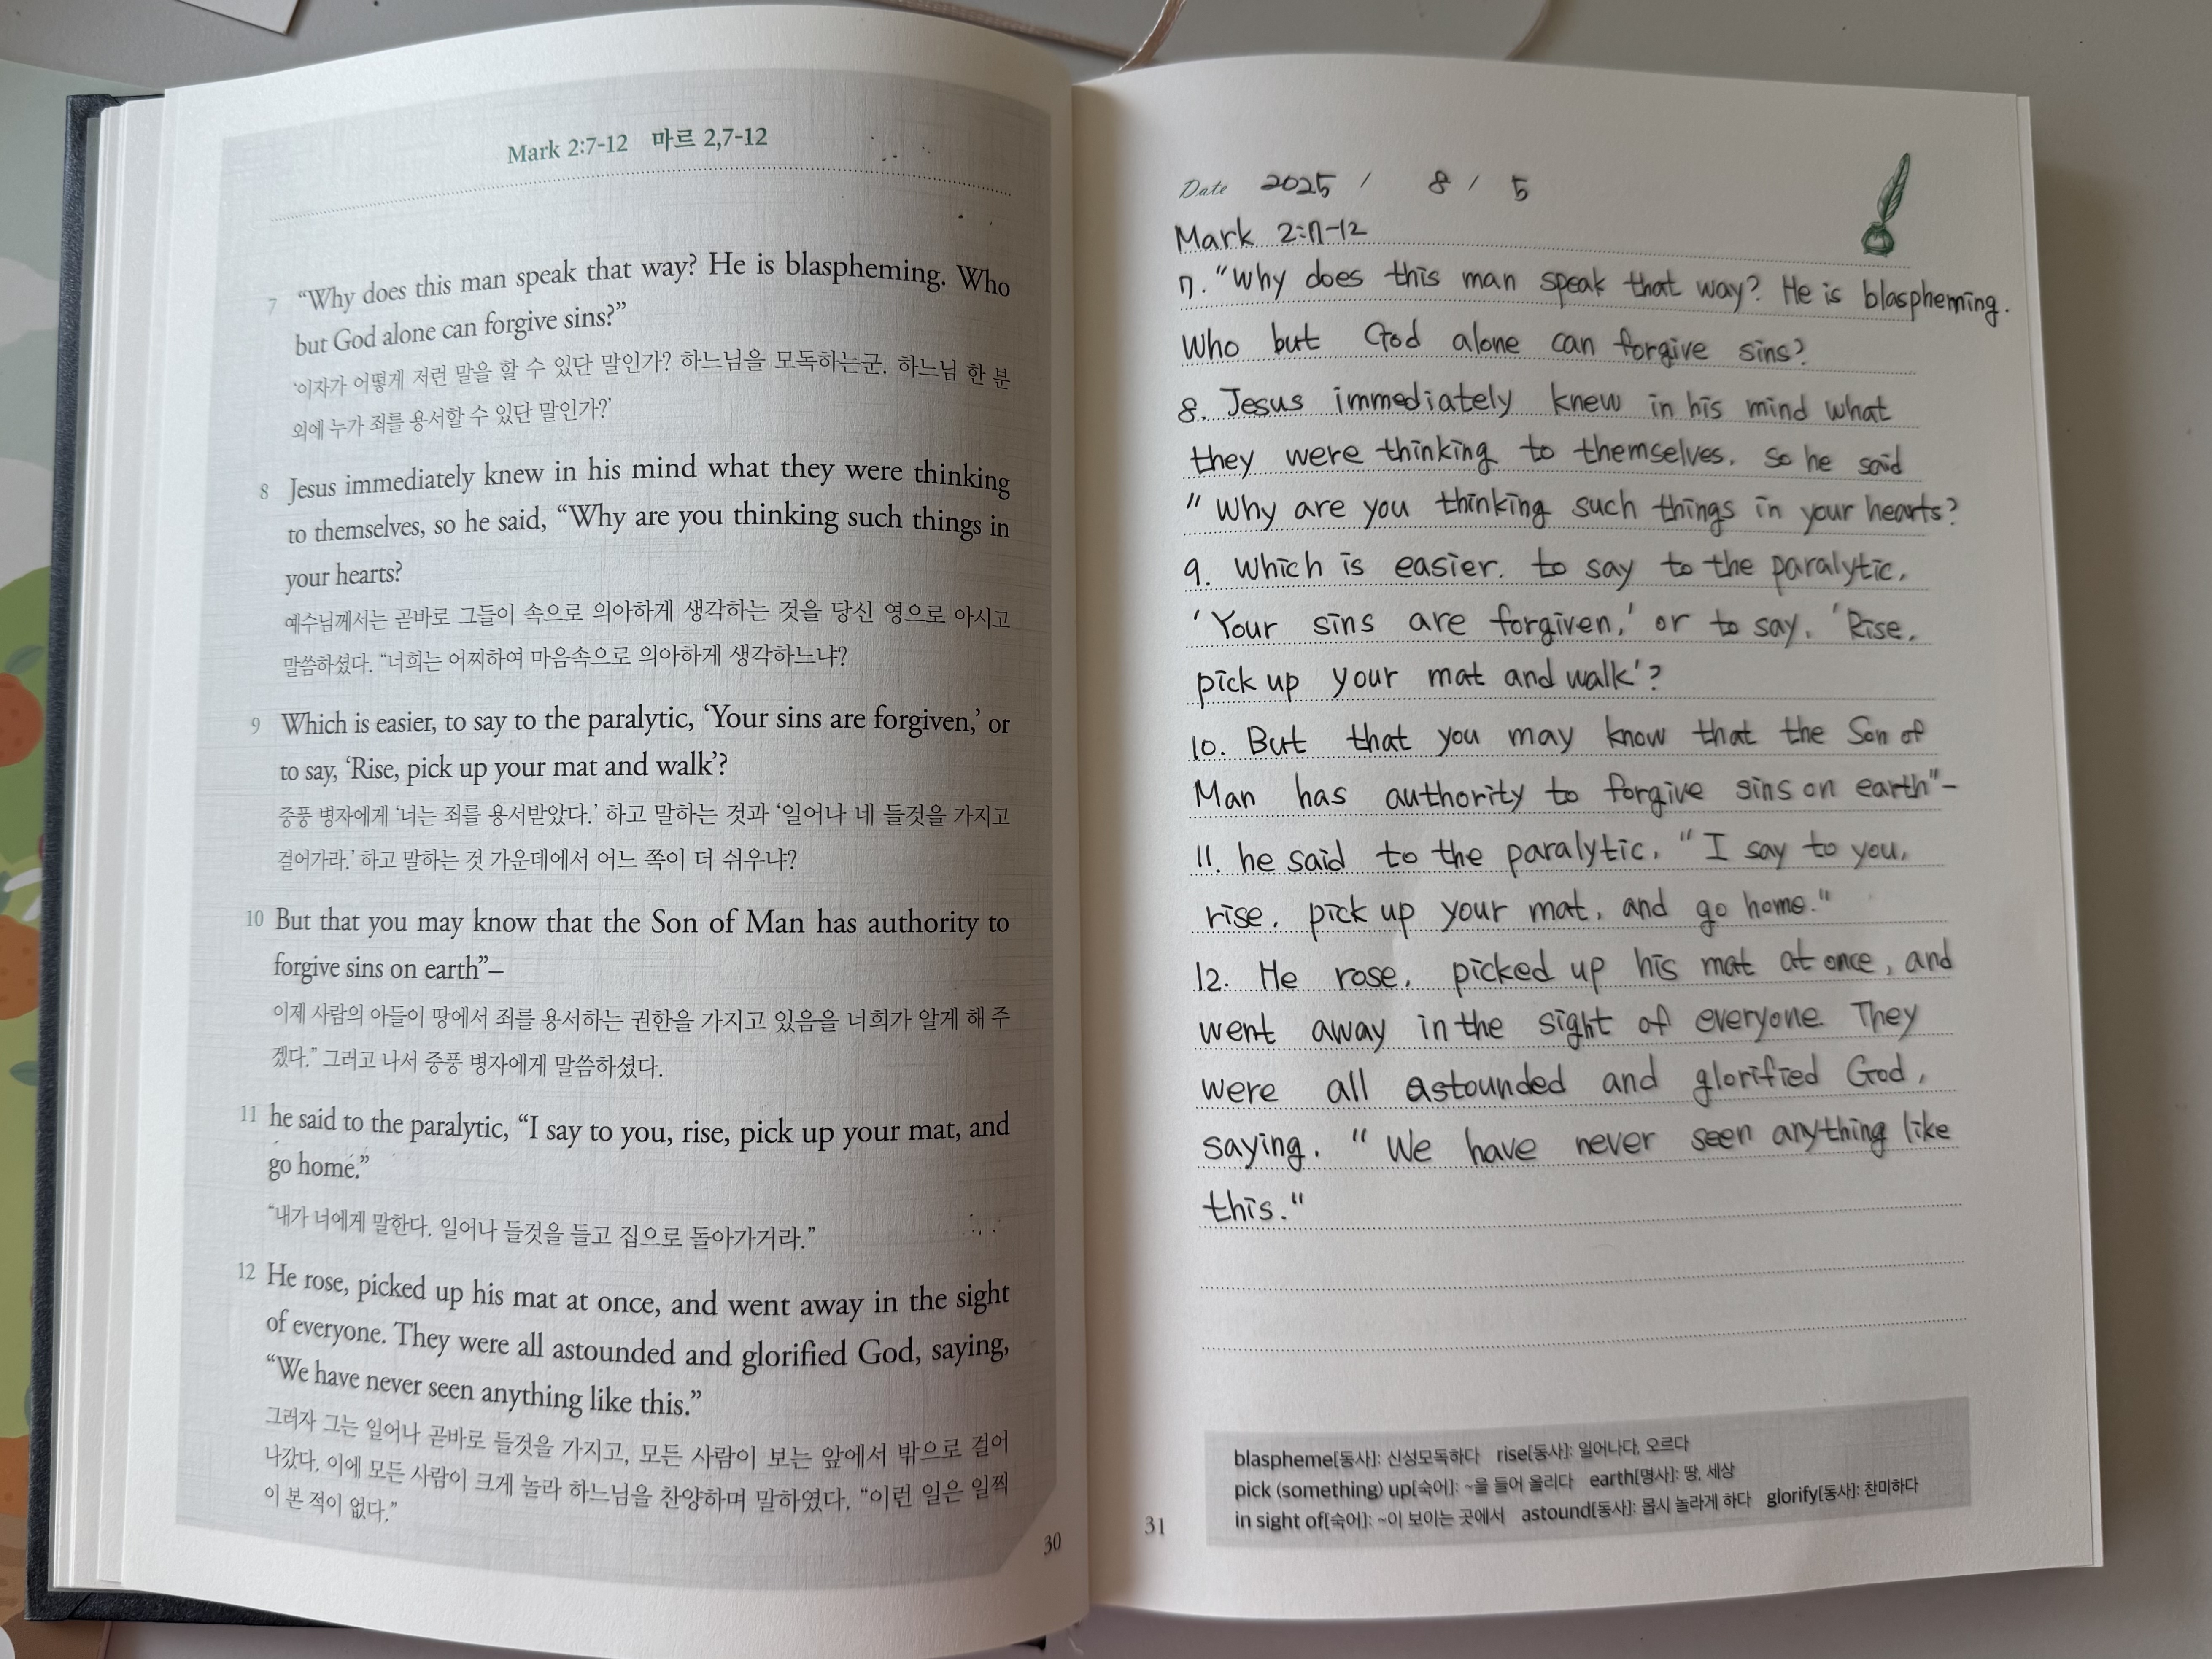 Mark 2:7-12 마르 2,7-12
7 “Why does this man speak that way? He is blaspheming. Who
but God alone can forgive sins?”
‘이자가 어떻게 저런 말을 할 수 있단 말인가? 하느님을 모독하는군. 하느님 한 분
외에 누가 죄를 용서할 수 있단 말인가?’
8 Jesus immediately knew in his mind what they were thinking
to themselves, so he said, “Why are you thinking such things in
your hearts?
예수님께서는 곧바로 그들이 속으로 의아하게 생각하는 것을 당신 영으로 아시고
말씀하셨다. “너희는 어찌하여 마음속으로 의아하게 생각하느냐?
9 Which is easier, to say to the paralytic, ‘Your sins are forgiven,’ or
to say, ‘Rise, pick up your mat and walk’?
중풍 병자에게 ‘너는 죄를 용서받았다.’ 하고 말하는 것과 ‘일어나 네 들것을 가지고
걸어가라.’ 하고 말하는 것 가운데에서 어느 쪽이 더 쉬우냐?
10 But that you may know that the Son of Man has authority to
forgive sins on earth”–
이제 사람의 아들이 땅에서 죄를 용서하는 권한을 가지고 있음을 너희가 알게 해 주
겠다.” 그러고 나서 중풍 병자에게 말씀하셨다.
11 he said to the paralytic, “I say to you, rise, pick up your mat, and
go home.”
“내가 너에게 말한다. 일어나 들것을 들고 집으로 돌아가거라.”
12 He rose, picked up his mat at once, and went away in the sight
of everyone. They were all astounded and glorified God, saying,
“We have never seen anything like this.”
그러자 그는 일어나 곧바로 들것을 가지고, 모든 사람이 보는 앞에서 밖으로 걸어
나갔다. 이에 모든 사람이 크게 놀라 하느님을 찬양하며 말하였다. “이런 일은 일찍
이 본 적이 없다.”
30
Date 2025 / 8 / 5
Mark 2:7-12
7. “Why does this man speak that way? He is blaspheming.
Who but God alone can forgive sins?
8. Jesus immediately knew in his mind what
they were thinking to themselves. so he said
" Why are you thinking such things in your hearts?
9. Which is easier. to say to the paralytic.
‘Your sins are forgiven,’ or to say. ‘Rise.
pick up your mat and walk’?
10. But that you may know that the Son of
Man has authority to forgive sins on earth"-
11. he said to the paralytic. "I say to you.
rise. pick up your mat, and go home."
12. He rose. picked up his mat at once, and
went away in the sight of everyone. They
were all astounded and glorified God,
saying. " We have never seen anything like
this."
blaspheme[동사]: 신성모독하다 rise[동사]: 일어나다, 오르다
pick (something) up[숙어]: ~을 들어 올리다 earth[명사]: 땅, 세상
in sight of[숙어]: ~이 보이는 곳에서 astound[동사]: 몹시 놀라게 하다 glorify[동사]: 찬미하다
31